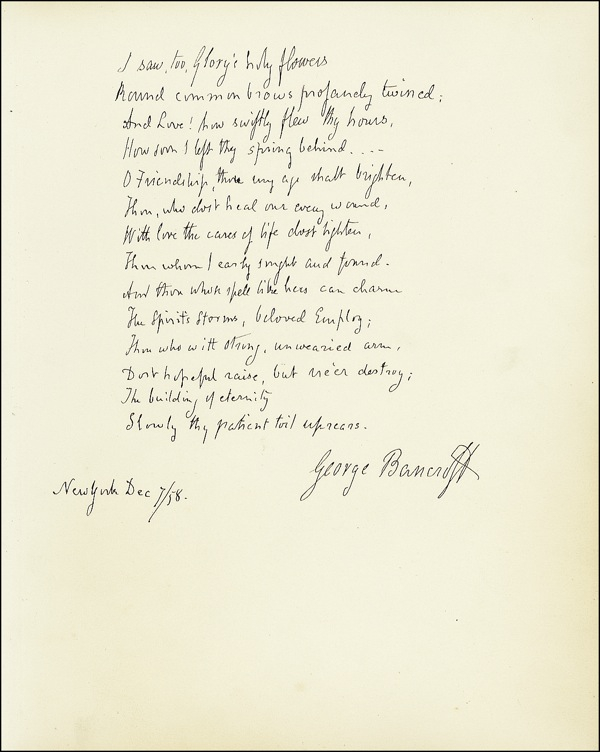 I saw, too, Glory's holy flowers
Round common brows profanely twined;
And Love! how swiftly flew thy hours,
How soon I left thy spring behind....
O Friendship, thou my age shalt brighten,
Thou, who dost heal our every wound,
With love the cares of life dost lighten,
Thou whom I early sought and found.
And thou whose spell like hers can charm
The Spirit's Storms, beloved Employ;
Thou who with strong, unwearied arm,
Dost hopeful raise, but ne'er destroy;
The building of eternity
Slowly thy patient toil uprears.
George Bancroft
New York Dec 7/58.